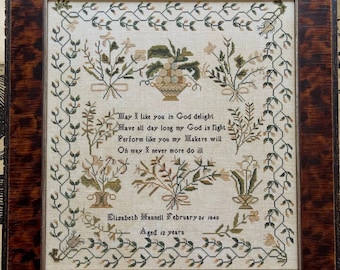 May I like you in God delight
Have all day long my God in sight
Perform like you my Makers will
Oh may I never more do ill
Elizabeth February 26 1840
Aged 12 years